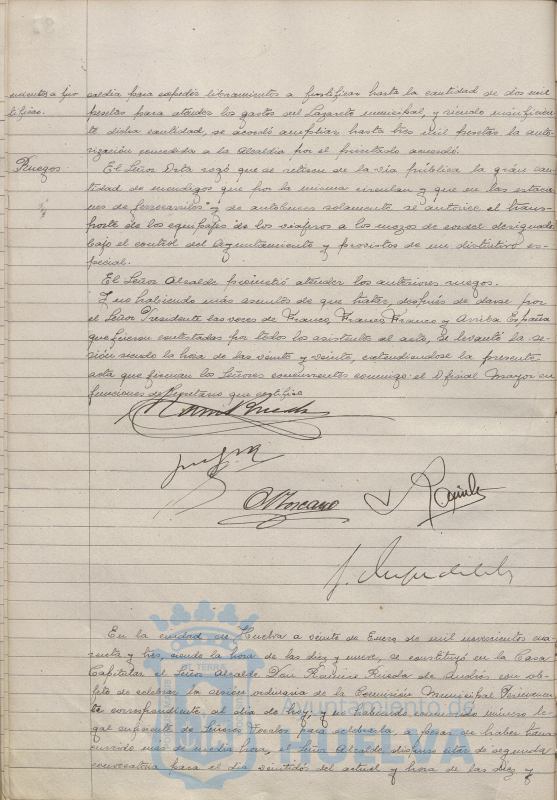 mientos a jus
tificar.
caldía para expedir libramientos a justificar hasta la cantidad de dos mil
pesetas para atender los gastos del Lazareto municipal, y siendo insuficien
te dicha cantidad, se acordó ampliar hasta tres mil pesetas la auto-
rización concedida a la Alcaldía por el precitado acuerdo.
Ruegos.
El Señor Orta rogó que se retiren de la vía pública la gran can
tidad de mendigos que por la misma circulan y que en las estacio
nes de ferrocarriles y de autobuses solamente se autorice el trans-
porte de los equipajes de los viajeros a los mozos de cordel designados
bajo el control del Ayuntamiento y provistos de un distintivo es-
pecial.
El Señor Alcalde prometió atender los anteriores ruegos.
Y no habiendo más asuntos de que tratar, después de darse por
el Señor Presidente las voces de Franco, Franco, Franco y Arriba España
que fueron contestadas por todos los asistentes al acto, se levantó la se-
sión siendo la hora de las veinte y veinte, extendiéndose la presente
acta que firman los Señores concurrentes conmigo el Oficial Mayor en
funciones de Secretario que certifico
O Toscano
En la ciudad de Huelva a veinte de Enero de mil novecientos cua
renta y tres, siendo la hora de las diez y nueve, se constituyó en la Casa
Capitular el Señor Alcalde Don Ramiro Rueda de Andrés con ob-
jeto de celebrar la sesión ordinaria de la Comisión Municipal Permanen
te correspondiente al día de hoy, y no habiendo concurrido número le-
gal suficiente de Señores Vocales para celebrarla, a pesar de haber trans
currido más de media hora, el Señor Alcalde dispuso citar de segunda
convocatoria para el día veintidós del actual y hora de las diez y
Ayuntamiento de
HUELVA